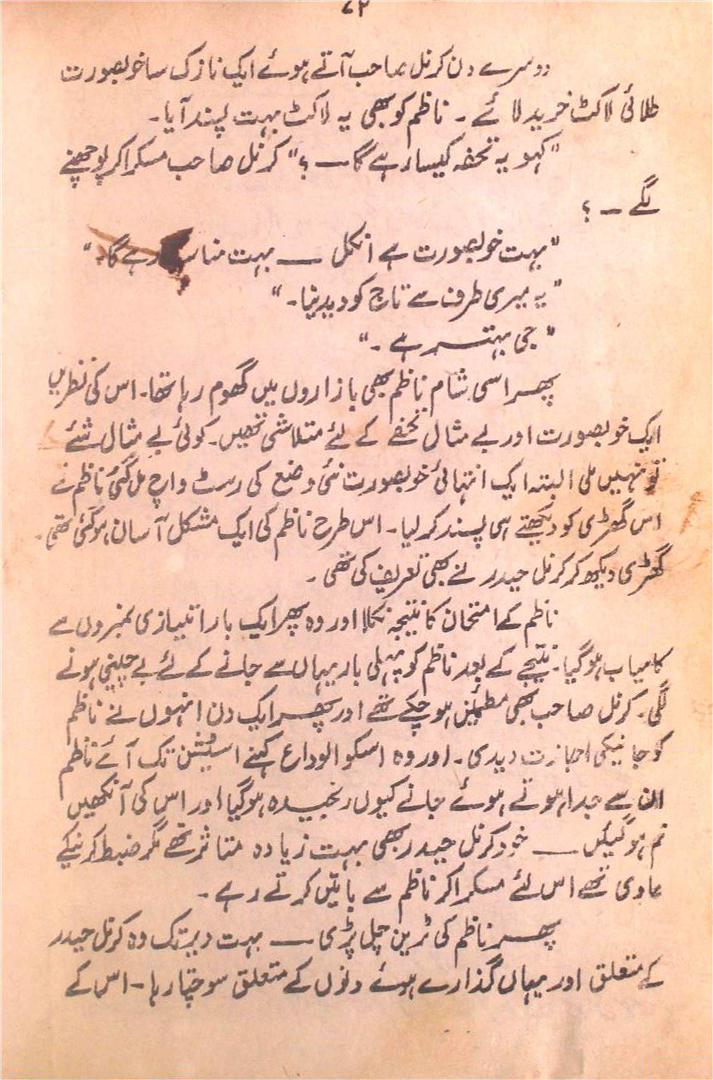 ۷۲
دوسرے دن کرنل صاحب آتے ہوئے ایک نازک سا خوبصورت
طلائی لاکٹ خرید لائے ۔ ناظم کو بھی یہ لاکٹ بہت پسند آیا ۔
"کہو یہ تحفہ کیسا رہے گا — ؟" کرنل صاحب مسکرا کر پوچھنے
لگے ۔ ؟
"بہت خوبصورت ہے انکل — بہت مناسب رہے گا ۔"
"یہ میری طرف سے تاج کو دیدینا ۔"
"جی بہتر ہے ۔"
پھر اسی شام ناظم بھی بازاروں میں گھوم رہا تھا ۔ اس کی نظریں
ایک خوبصورت اور بے مثال تحفے کے لئے متلاشی تھیں ۔ کوئی بے مثال شئے
تو نہیں ملی البتہ ایک انتہائی خوبصورت نئی وضع کی رسٹ واچ مل گئی ناظم نے
اس گھڑی کو دیکھتے ہی پسند کر لیا ۔ اس طرح ناظم کی ایک مشکل آسان ہو گئی تھی ۔
گھڑی دیکھ کر کرنل حیدر نے بھی تعریف کی تھی ۔
ناظم کے امتحان کا نتیجہ نکلا اور وہ پھر ایک بار امتیازی نمبروں سے
کامیاب ہو گیا ۔ نتیجے کے بعد ناظم کو پہلی بار یہاں سے جانے کے لئے بے چینی ہونے
لگی ۔ کرنل صاحب بھی مطمئن ہو چکے تھے اور پھر ایک دن انہوں نے ناظم
کو جانیکی اجازت دیدی ۔ اور وہ اسکو الوداع کہنے اسٹیشن تک آئے ناظم
ان سے جدا ہوتے ہوئے جانے کیوں رنجیدہ ہو گیا اور اس کی آنکھیں
نم ہو گئیں — خود کرنل حیدر بھی بہت زیادہ متاثر تھے مگر ضبط کرنیکے
عادی تھے اس لئے مسکرا کر ناظم سے باتیں کرتے رہے ۔
پھر ناظم کی ٹرین چل پڑی — بہت دیر تک وہ کرنل حیدر
کے متعلق اور یہاں گذارے ہوئے دنوں کے متعلق سوچتا رہا ۔ اس کے